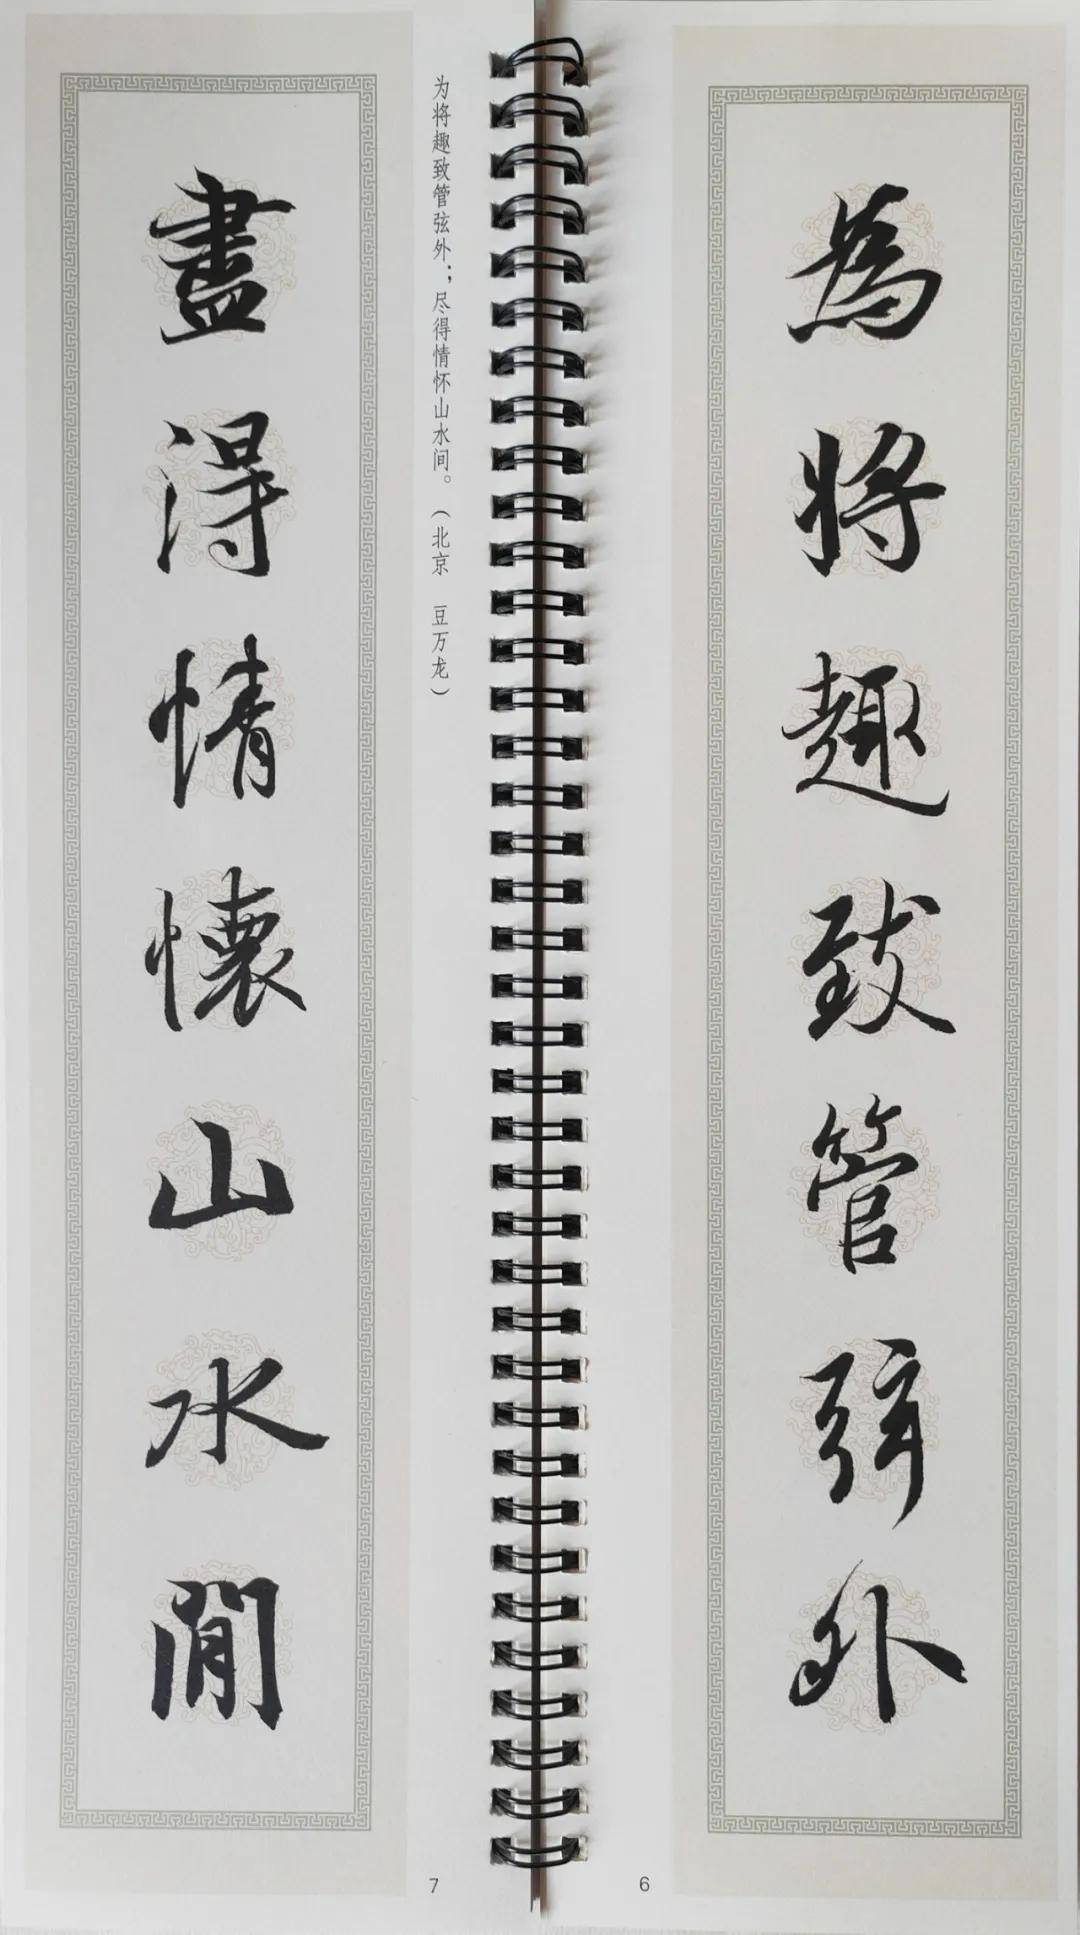 為將趣致管弦外
盡得情懷山水間
为将趣致管弦外；尽得情怀山水间。（北京　豆万龙）
7
6